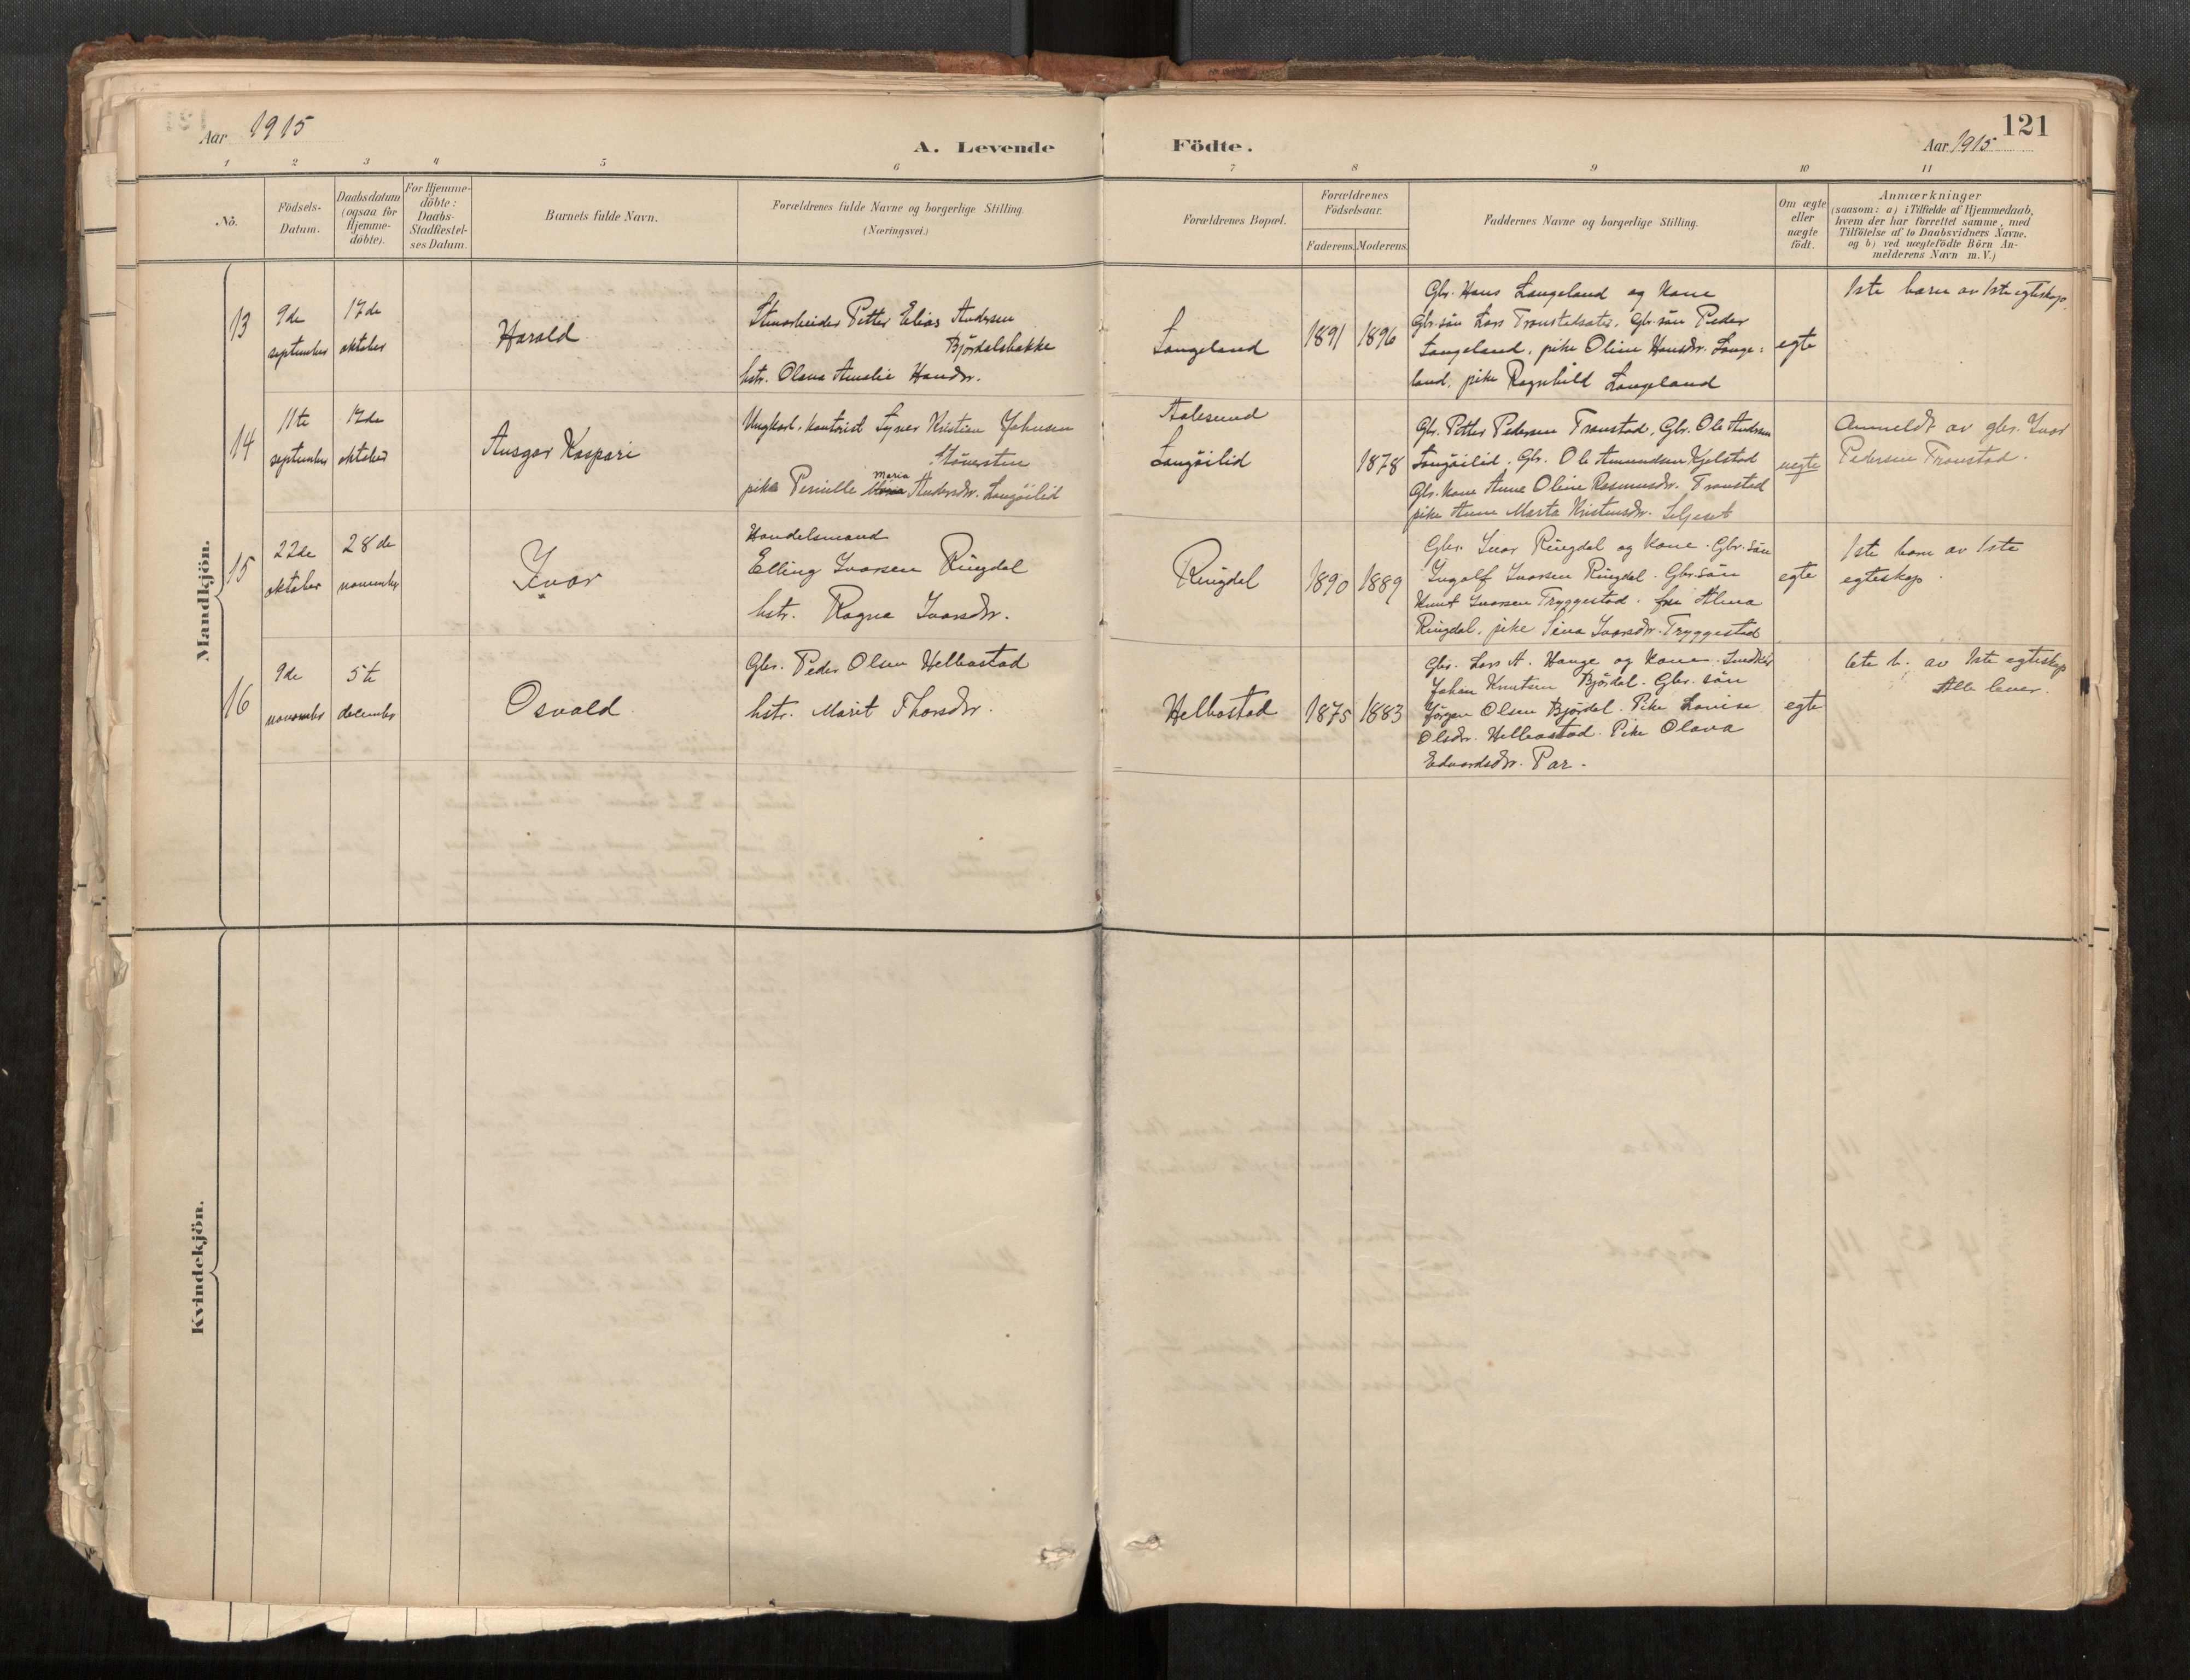 Aar 1915
A. Levende
Födte.
121
Aar 1915
1 2 3 4 5 6 7 8 9 10 11
No.
Födsels-
Datum.
Daabsdatum
(ogsaa for
Hjemme-
döbte).
For Hjemme-
döbte:
Daabs-
Stadfæstel-
ses Datum.
Barnets fulde Navn.
Forældrenes fulde Navne og borgerlige Stilling.
(Næringsvei.)
Forældrenes Bopæl.
Forældrenes
Födselsaar.
Faderens. Moderens.
Faddernes Navne og borgerlige Stilling.
Om ægte
eller
uægte
födt.
Anmærkninger
(saasom: a) i Tilfælde af Hjemmedaab,
hvem der har forrettet samme, med
Tilföielse af to Daabsvidners Navne.
og b) ved uægtefödte Börn An-
melderens Navn m. V.)
Mandkjön.
13
9de
september
17de
oktober
Harald
Stenarbeider Petter Elias Andersen
Björdalsbakke
hstr. Olava Amalie Hansdr.
Langeland
1891
1896
Gbr. Hans Langeland og Kone
Gbr. sön Lars Tronstadsæter, Gbr. sön Peder
Langeland, pike Oline Hansdr. Lange=
land, pike Ragnhild Langeland
egte
1ste barn av 1ste egteskap.
14
11te
september
17de
oktober
Ansgar Kaspari
Ungkarl, kontorist Syver Kristian Johnsen
pike Pernille Maria Andersdr. Langöilid
Aalesund
Langöilid
1878
Gbr. Petter Pedersen Tronstad, Gbr. Ole Andersen
Langöilid, Gbr. Ole Amundsen Kjelstad
Gbr. Kone Anne Oline Rasmusdr. Tronstad
pike Anne Marta Kristensdr. Seljeset
uegte
Anmeldt av gbr. Ivar
Pedersen Tronstad.
15
22de
oktober
28de
november
Ivar
Handelsmand
Elling Ivarsen Ringdal
hstr. Ragna Ivarsdr.
Ringdal
1890
1889
Gbr. Ivar Ringdal og Kone. Gbr. sön
Ingolf Ivarsen Ringdal. Gbr. sön
Knut Ivarsen Tryggestad. fru Alma
Ringdal, pike Sina Ivarsdr. Tryggestad
egte
1ste barn av 1ste
egteskap.
16
9de
november
5te
december
Osvald.
Gbr. Peder Olsen Helbostad
hstr. Marit Thorsdr.
Helbostad
1875
1883
Gbr. Lars A. Hauge og Kone. Snedker
Johan Knutsen Björdal. Gbr. sön
Jörgen Olsen Björdal. Pike Lovise
Olsdr. Helbostad. Pike Olava
Edvardsdr. Par.
egte
6te b. av 1ste egteskap
Alle lever.
Kvindekjön.